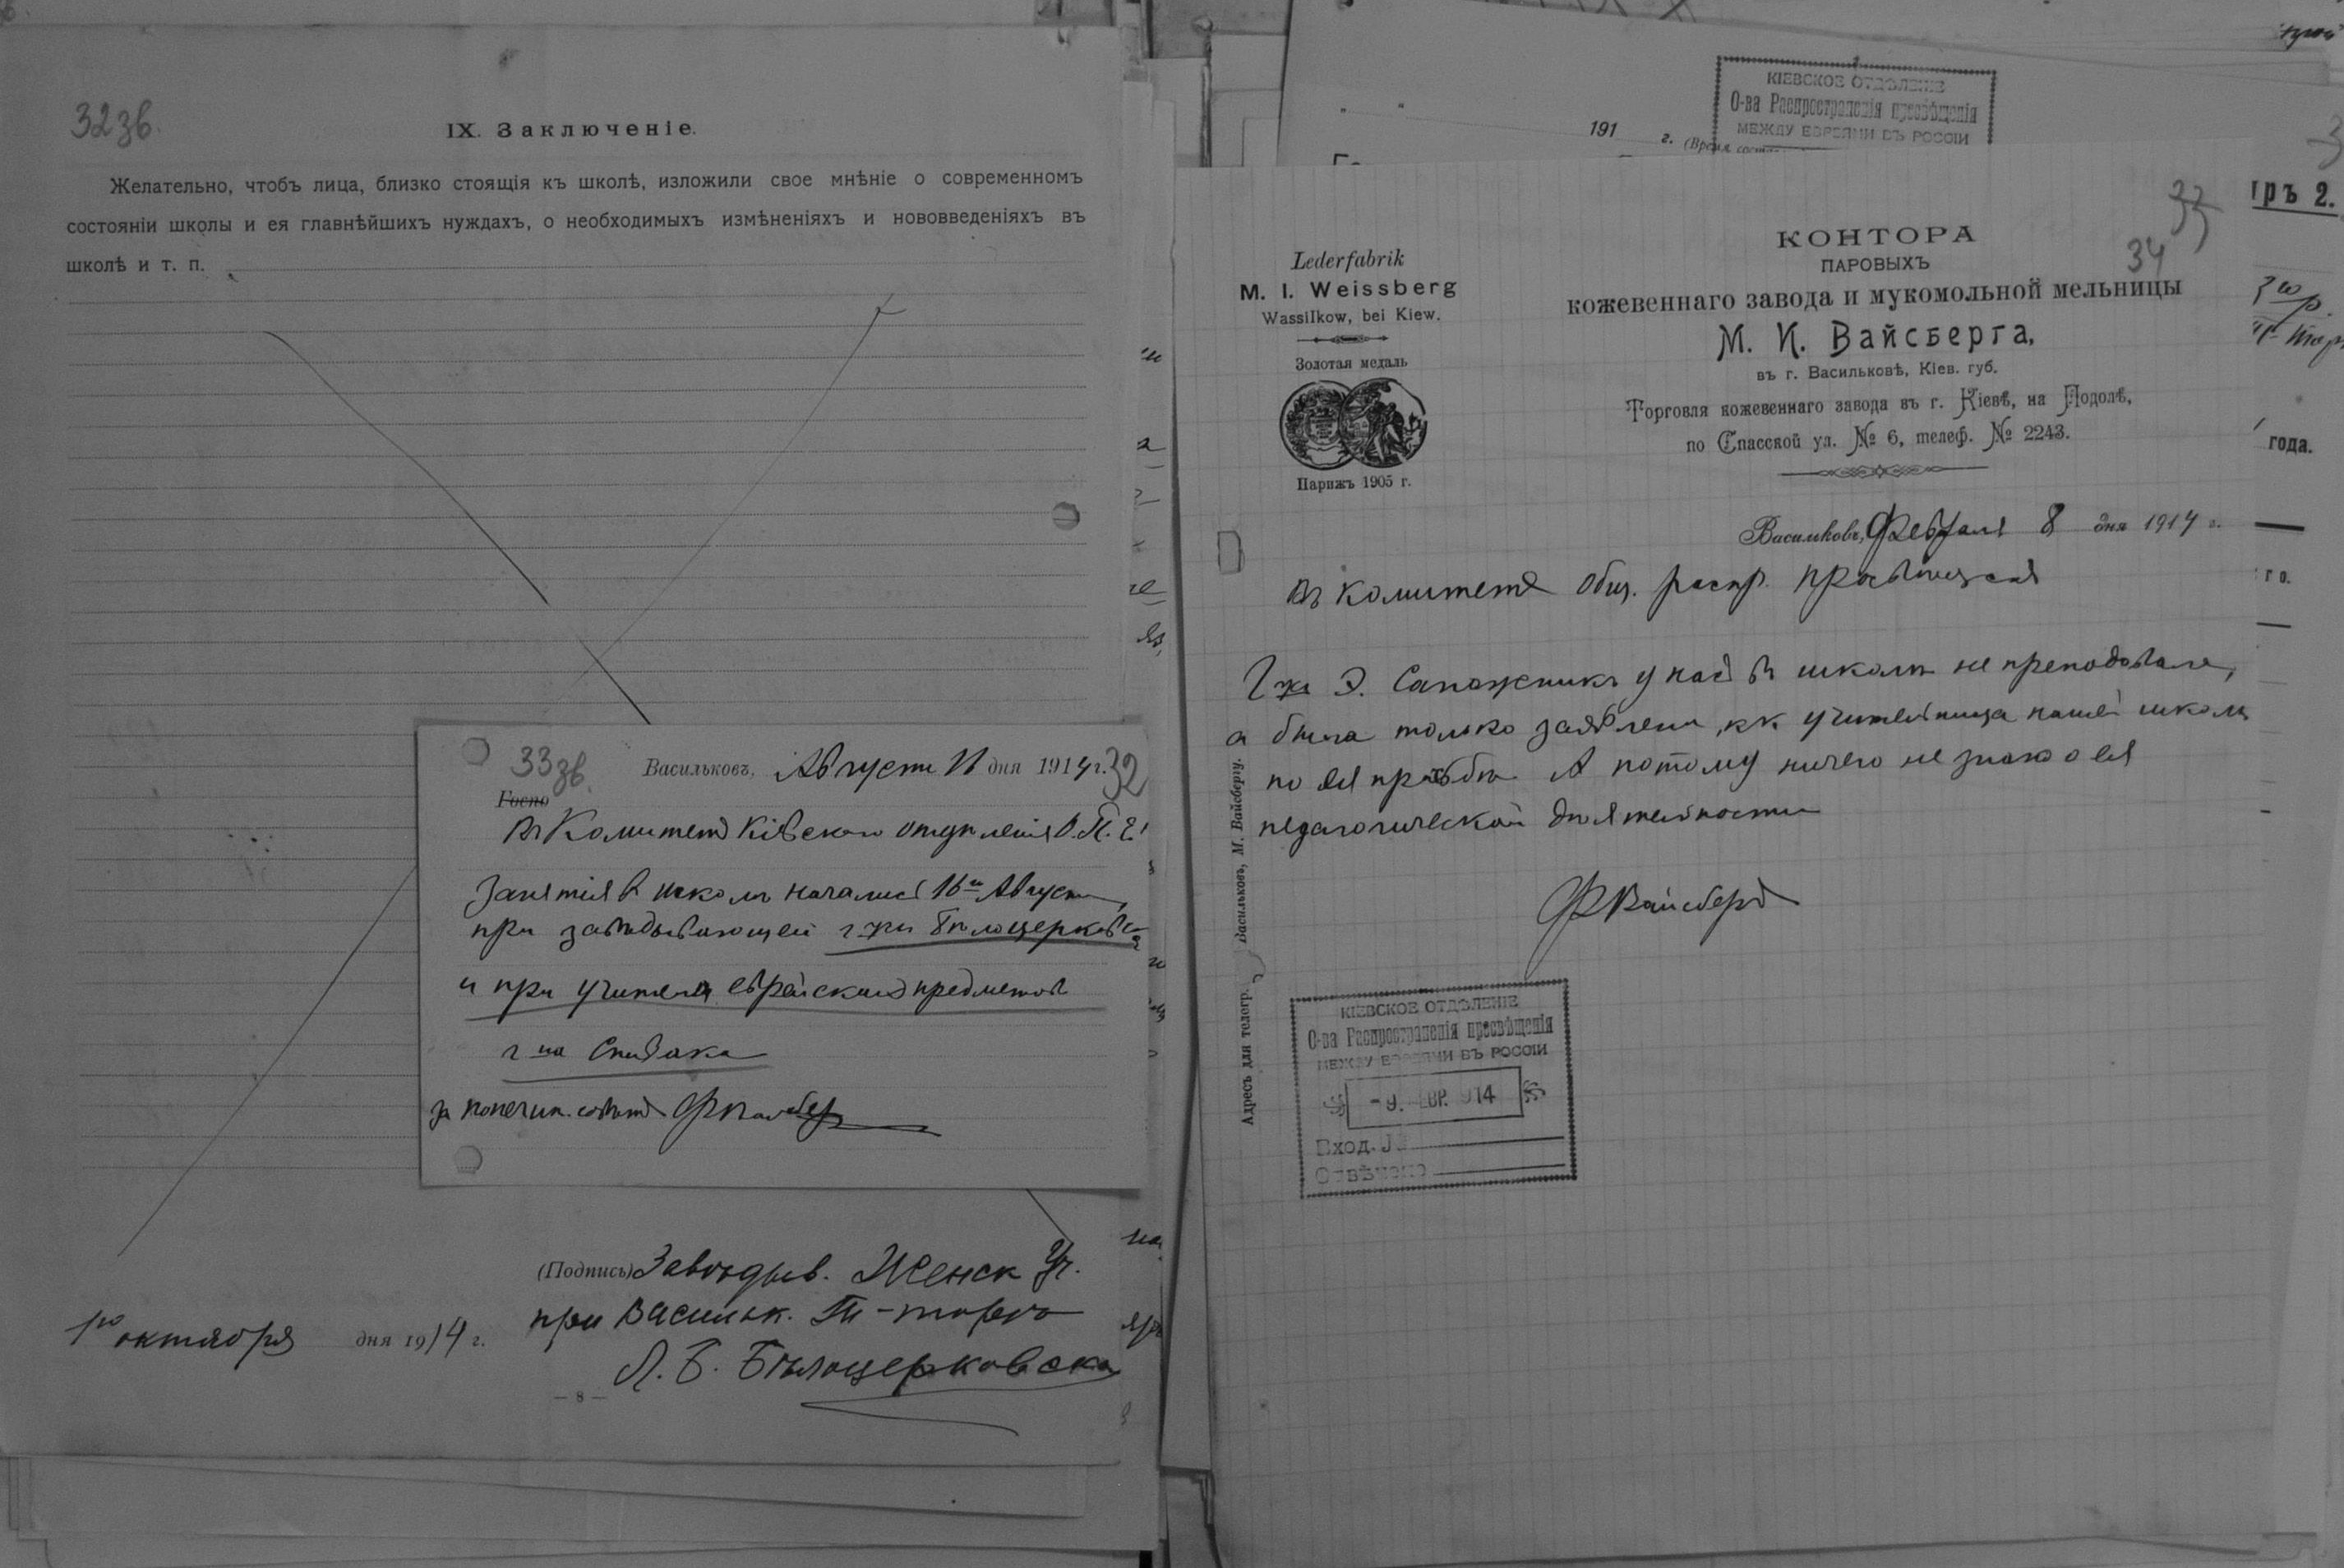 32зв.
IX. Заключеніе.
Желательно, чтобъ лица, близко стоящія къ школѣ, изложили свое мнѣніе о современномъ
состояніи школы и ея главнѣйшихъ нуждахъ, о необходимыхъ измѣненіяхъ и нововведеніяхъ въ
школѣ и т. п.
33зв.
Васильковъ, Августа дня 1914 г. 32
Госпо
Въ Комитетъ Кіевскаго отдѣленія О. П. Е.
Занятія въ школѣ начались 16го Августа,
при завѣдывающей г-жи Бѣлоцерковско
и при учителя еврейскихъ предметовъ
г на Спивака
за попечит. совѣтъ ФВайсберг
(Подпись) Завѣдыв. Женск Уч.
при Васильк. Т-торѣ
1го октября дня 1914 г.
Л. Б. Бѣлоцерковска
— 8 —
КІЕВСКОЕ ОТДѢЛЕНІЕ
О-ва Распространенія просвѣщенія
МЕЖДУ ЕВРЕЯМИ ВЪ РОССІИ
191 г. (Время
ГРЪ 2.
года.
го.
33
34
Lederfabrik
M. I. Weissberg
Wassilkow, bei Kiew.
Золотая медаль
Парижъ 1905 г.
КОНТОРА
ПАРОВЫХЪ
кожевеннаго завода и мукомольной мельницы
М. И. Вайсберга,
въ г. Васильковѣ, Кіев. губ.
Торговля кожевеннаго завода въ г. Кіевѣ, на Подолѣ,
по Спасской ул. № 6, телеф. № 2243.
Васильковъ, Февраля 8 дня 1914 г.
Въ Комитетъ Общ. распр. просвѣщенія
Г жа Э. Сапожникъ у насъ въ школѣ не преподавала,
а была только заявлена, кк учительница нашей школы
по ея просьбѣ. А потому ничего не знаю о ея
педагогической дѣятельности
ФВайсбергъ
Адресъ для телегр. Васильковъ, М. Вайсбергу.
КІЕВСКОЕ ОТДѢЛЕНІЕ
О-ва Распространенія просвѣщенія
МЕЖДУ ЕВРЕЯМИ ВЪ РОССІИ
-9. ЕВР. 914
Вход. №
Отвѣчено